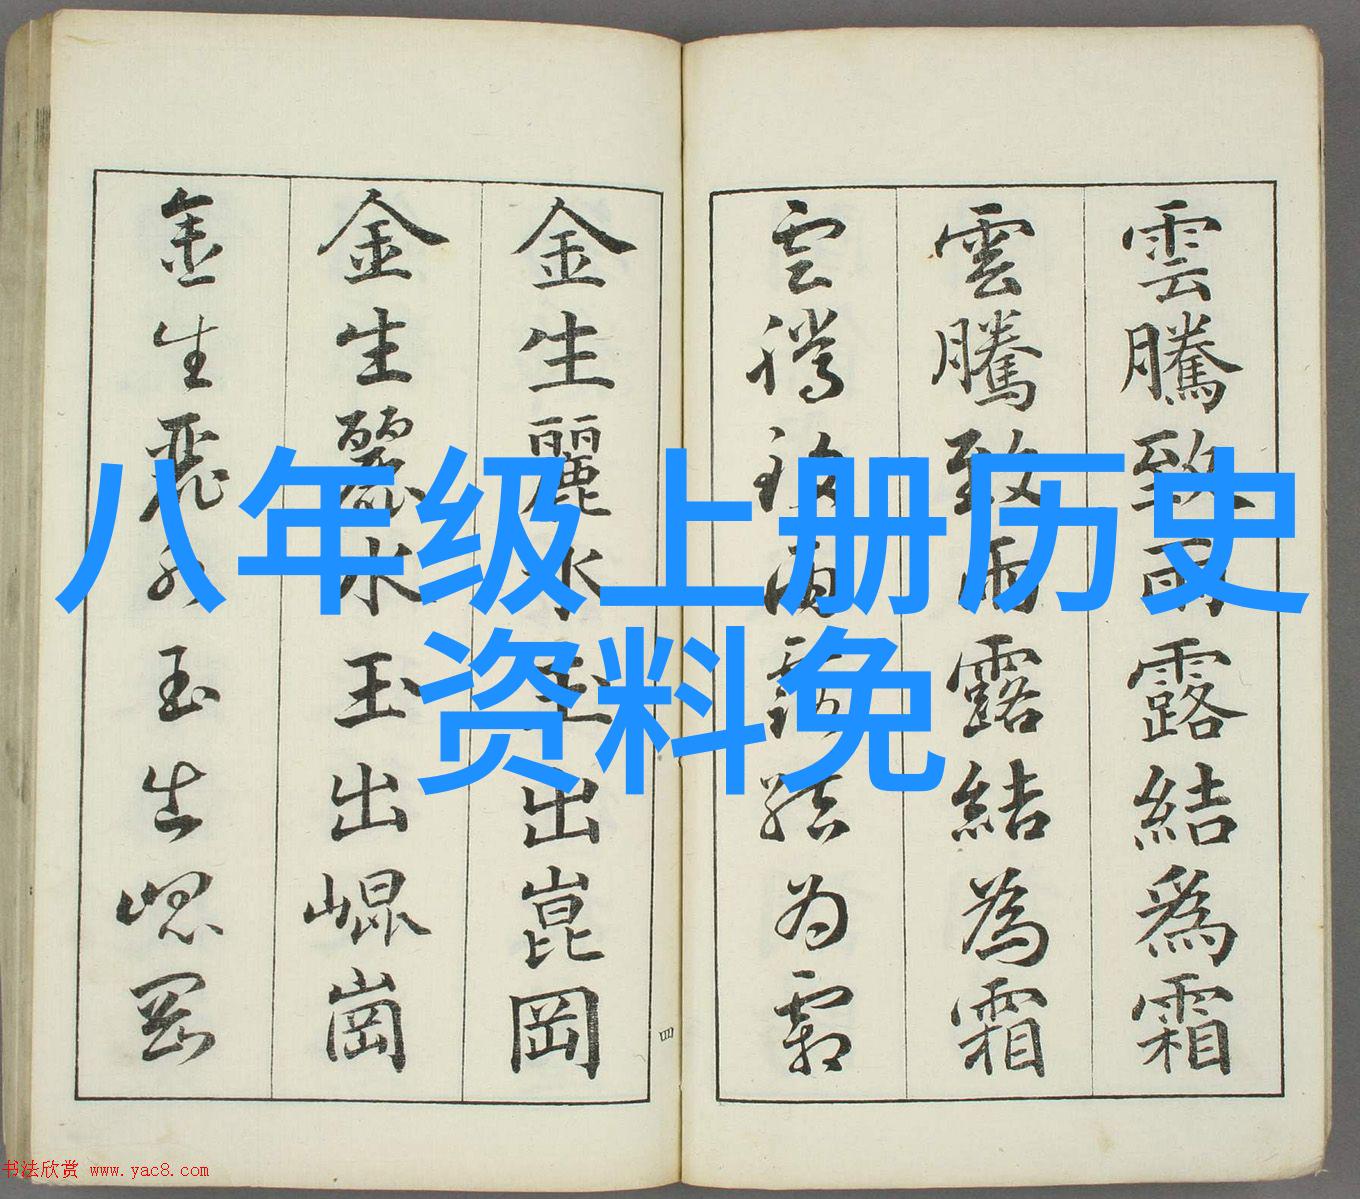 雲騰致雨露結爲霜
雲騰致雨露結為霜
雲騰致雨露結為霜
金生麗水玉出崑岡
金生麗水玉出崐崗
金生麗水玉出崐岡
四
八年级上册历史
资料免
书法欣赏 www.yac8.com